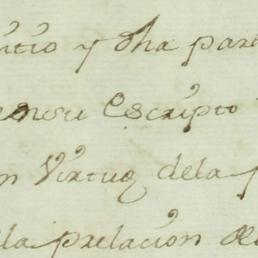 y dha par
en su Escripto
n Virtud de la
la prelacion de